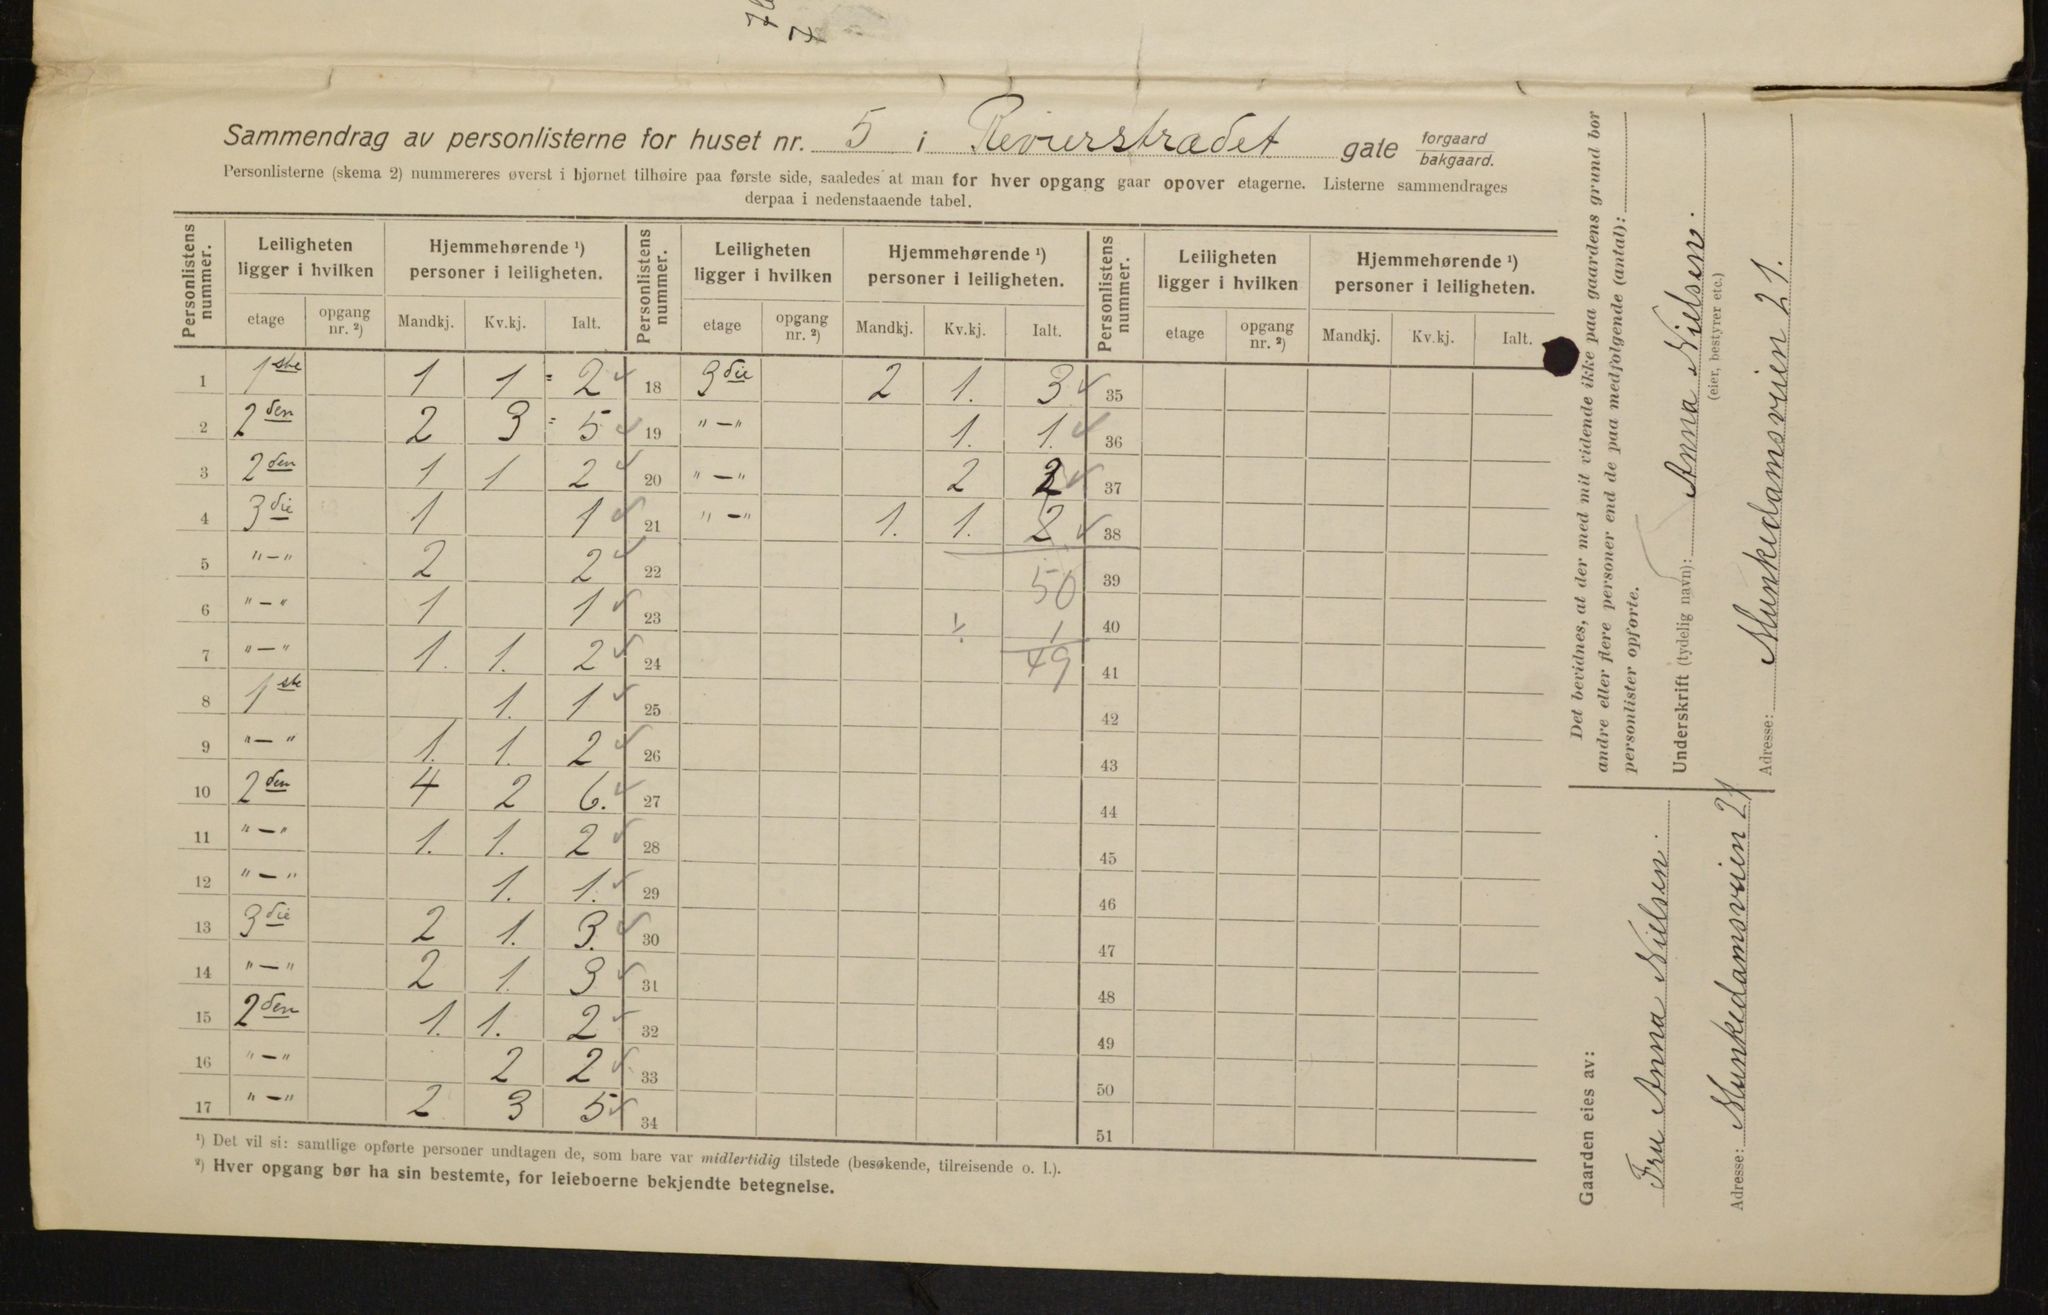 Sammendrag av personlisterne for huset nr. 5 i Revierstrædet gate forgaard bakgaard.
Personlisterne (skema 2) nummereres øverst i hjørnet tilhøire paa første side, saaledes at man for hver opgang gaar opover etagerne. Listerne sammendrages
derpaa i nedenstaaende tabel.
Personlistens nummer. Leiligheten ligger i hvilken Hjemmehørende ¹) personer i leiligheten. Personlistens nummer. Leiligheten ligger i hvilken Hjemmehørende ¹) personer i leiligheten. Personlistens nummer. Leiligheten ligger i hvilken Hjemmehørende ¹) personer i leiligheten.
etage opgang nr. ²) Mandkj. Kv.kj. Ialt. etage opgang nr. ²) Mandkj. Kv.kj. Ialt. etage opgang nr. ²) Mandkj. Kv.kj. Ialt.
1 1ste 1 1 = 2 18 3die 2 1. 3 35
2 2den 2 3 = 5 19 "—" 1. 1. 36
3 2den 1 1 2 20 "—" 2 2 37
4 3die 1 1 21 "—" 1. 1. 2 38
5 "—" 2 2 22 50 39
6 "—" 1 1 23 ÷ 1 40
7 "—" 1. 1. 2 24 49 41
8 1ste 1. 1 25 42
9 "—" 1. 1. 2 26 43
10 2den 4 2 6. 27 44
11 "—" 1. 1. 2 28 45
12 "—" 1. 1. 29 46
13 3die 2 1. 3. 30 47
14 "—" 2 1. 3 31 48
15 2den 1. 1. 2 32 49
16 "—" 2 2 33 50
17 "—" 2 3 5 34 51
¹) Det vil si: samtlige opførte personer undtagen de, som bare var midlertidig tilstede (besøkende, tilreisende o. l.).
²) Hver opgang bør ha sin bestemte, for leieboerne bekjendte betegnelse.
Det bevidnes, at der med mit vidende ikke paa gaardens grund bor
andre eller flere personer end de paa medfølgende (antal):
personlister opførte.
Underskrift (tydelig navn): Anna Nielsen.
(eier, bestyrer etc.)
Adresse: Munkedamsveien 21.
Gaarden eies av:
Fru Anna Nielsen.
Adresse: Munkedamsveien 21